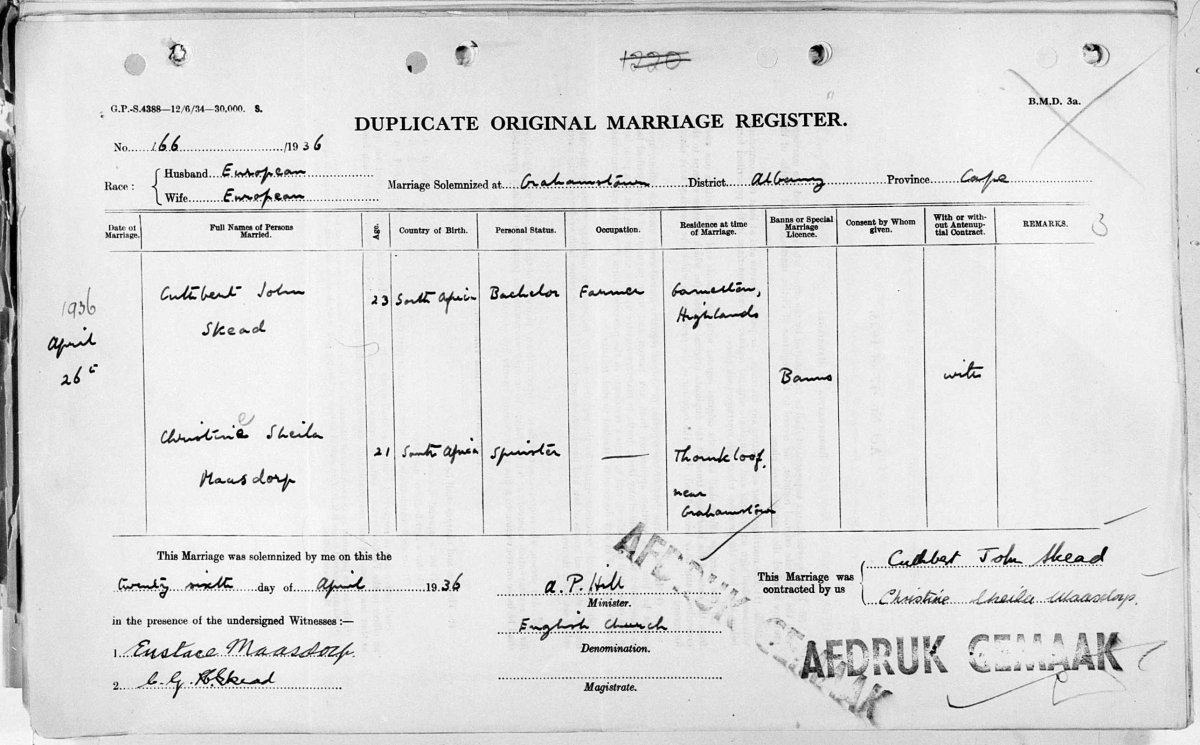 1220
G.P.-S.4388—12/6/34—30,000. S.
B.M.D. 3a.
DUPLICATE ORIGINAL MARRIAGE REGISTER.
No. 166 /1936
Race: Husband European
Wife European
Marriage Solemnized at Grahamstown District Albany Province Cape
Date of Marriage. Full Names of Persons Married. Age. Country of Birth. Personal Status. Occupation. Residence at time of Marriage. Banns or Special Marriage Licence. Consent by Whom given. With or without Antenuptial Contract. REMARKS. 3
1936
April
26
Cuthbert John Skead 23 South Africa Bachelor Farmer Highlands
Banns with
Christine Sheila Maasdorp 21 South Africa Spinster — Thornkloof, near Grahamstown
This Marriage was solemnized by me on this the
twenty sixth day of April 1936
in the presence of the undersigned Witnesses:—
1 Eustace Maasdorp.
2 C. G. Skead
A. P. Hill
Minister.
English Church
Denomination.
Magistrate.
This Marriage was contracted by us
Cuthbert John Skead
Christine Sheila Maasdorp.
AFDRUK GEMAAK
AFDRUK GEMAAK